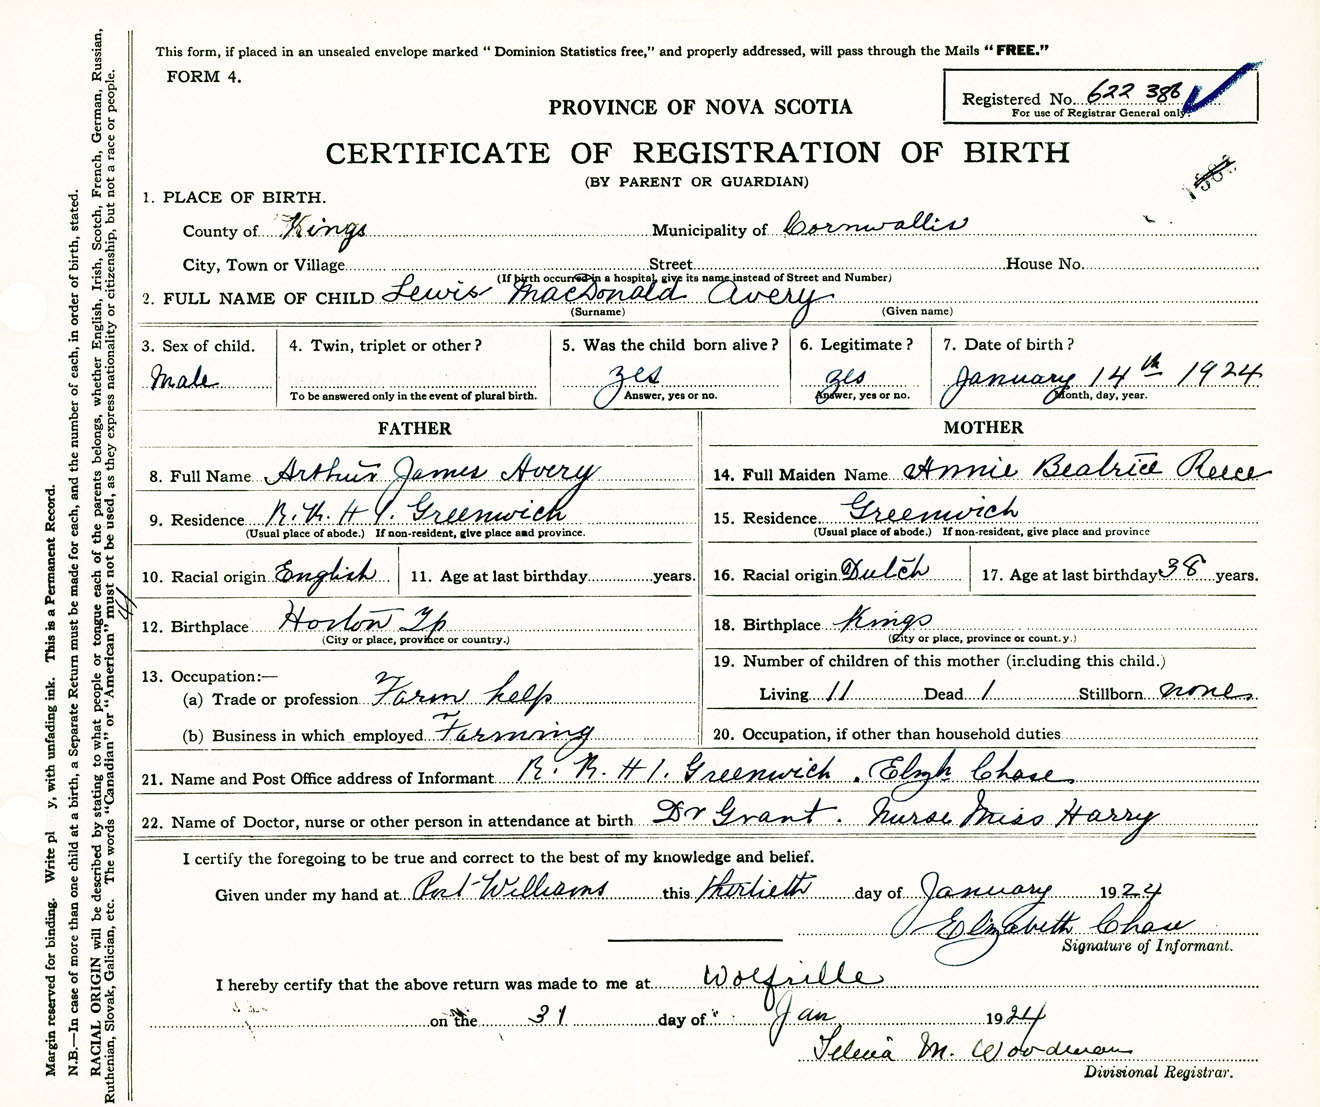 This form, if placed in an unsealed envelope marked "Dominion Statistics free," and properly addressed, will pass through the Mails "FREE."
FORM 4.
Registered No. 622 386
For use of Registrar General only.
PROVINCE OF NOVA SCOTIA
CERTIFICATE OF REGISTRATION OF BIRTH
(BY PARENT OR GUARDIAN)
1. PLACE OF BIRTH.
County of Kings Municipality of Cornwallis
City, Town or Village Street House No.
(If birth occurred in a hospital, give its name instead of Street and Number)
2. FULL NAME OF CHILD Lewis MacDonald Avery
(Surname) (Given name)
3. Sex of child. 4. Twin, triplet or other? 5. Was the child born alive? 6. Legitimate? 7. Date of birth?
Male yes yes January 14th 1924
To be answered only in the event of plural birth. Answer, yes or no. Answer, yes or no. Month, day, year.
FATHER
8. Full Name Arthur James Avery
9. Residence R. R. # 1. Greenwich
(Usual place of abode.) If non-resident, give place and province.
10. Racial origin English 11. Age at last birthday years.
12. Birthplace Horton Tp
(City or place, province or country.)
13. Occupation:—
(a) Trade or profession Farm help
(b) Business in which employed Farming
MOTHER
14. Full Maiden Name Annie Beatrice Reece
15. Residence Greenwich
(Usual place of abode.) If non-resident, give place and province
16. Racial origin Dutch 17. Age at last birthday 38 years.
18. Birthplace Kings
(City or place, province or county.)
19. Number of children of this mother (including this child.)
Living 11 Dead 1 Stillborn none
20. Occupation, if other than household duties
21. Name and Post Office address of Informant R. R. # 1. Greenwich. Elizh Chase
22. Name of Doctor, nurse or other person in attendance at birth Dr Grant. Nurse Miss Harry
I certify the foregoing to be true and correct to the best of my knowledge and belief.
Given under my hand at Port Williams this thirtieth day of January 1924
Elizabeth Chase
Signature of Informant.
I hereby certify that the above return was made to me at Wolfville
on the 31 day of Jan 1924
M. Woodman
Divisional Registrar.
Margin reserved for binding. Write pl y, with unfading ink. This is a Permanent Record.
N.B.—In case of more than one child at a birth, a Separate Return must be made for each, and the number of each, in order of birth, stated.
RACIAL ORIGIN will be described by stating to what people or tongue each of the parents belongs, whether English, Irish, Scotch, French, German, Russian,
Ruthenian, Slovak, Galician, etc. The words "Canadian" or "American" must not be used, as they express nationality or citizenship, but not a race or people.